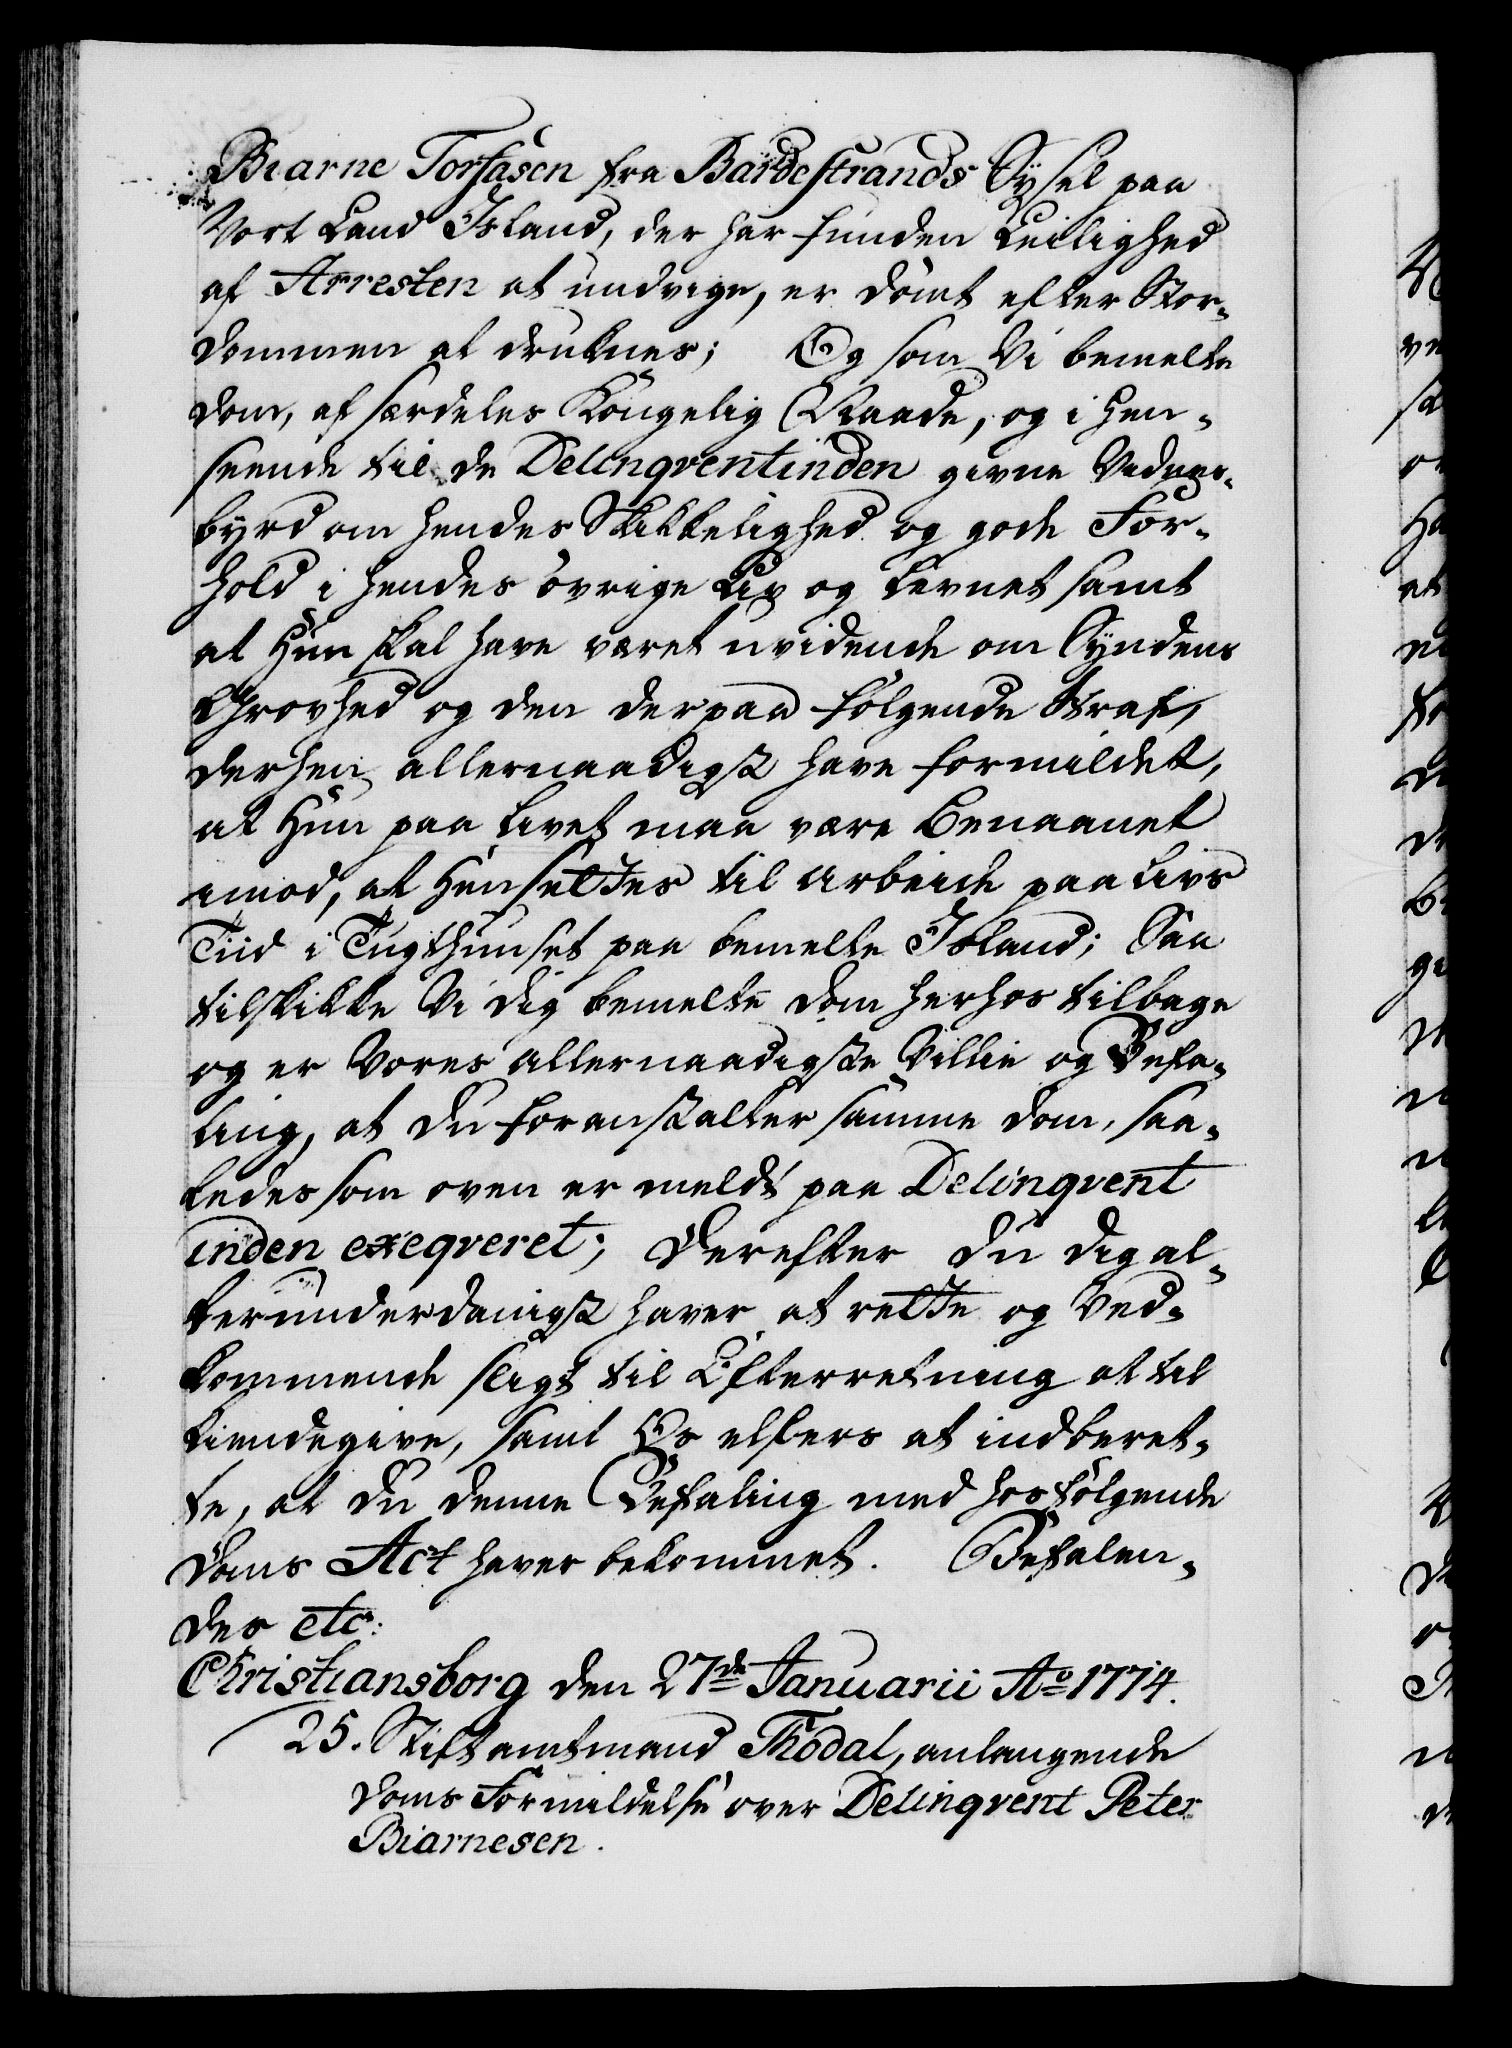 Biarne Torfasen fra Bardestrands Sysel paa
Vort Land Island, der har funden Leilighed
af Arresten at undvige, er dömt efter Stor-
dommen at druknes; Og som Vi bemelte
Dom, af særdeles Kongelig Naade, og i Hen-
seende til de Delinqventinden givne Vidnes-
byrd om hendes Skikkelighed og gode For-
hold i hendes övrige Liv og Levnet samt
at Hun skal have været uvidende om Syndens
Grovhed og den derpaa fölgende Straf,
derhen allernaadigst have formildet,
at Hun paa Livet maa være benaadet
imod, at Hensettes til Arbeide paa Livs
Tiid i Tugthuuset paa bemelte Island; Saa
tilskikke Vi dig bemelte Dom herhos tilbage
og er Vores allernaadigste Villie og Befa-
ling, at du foranstalter samme Dom, saa-
ledes som oven er meldt paa Delinqvent
inden exeqveret; Derefter du dig al-
lerunderdanigst haver at rette og Ved-
kommende sligt til Efterretning at til
kiendegive, samt Os elskers at indberet-
te, at du denne Befaling med hosfölgende
Doms Act haver bekommet. Befalen-
des etc:
Christiansborg den 27de Januarii Ao 1774.
25. Stiftamtmand Thodal, anlangende
Doms Formildelse over Delinqvent Peter
Biarnesen.